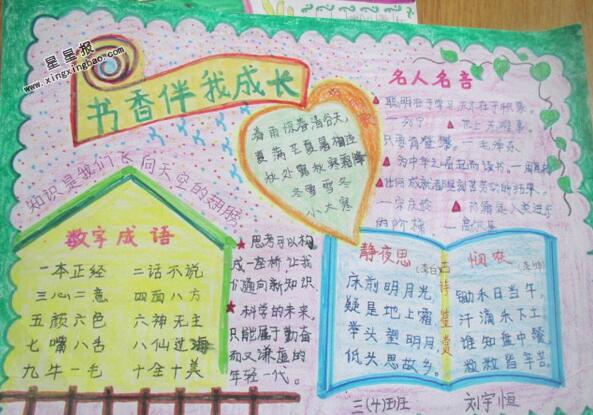 星星报
www.xingxingbao.com
书香伴我成长
知识是我们飞向天空的翅膀
春雨惊春清谷天
夏满芒夏暑相连
秋处露秋寒霜降
冬雪雪冬
小大寒
名人名言
聪明在于学习,天才在于积累。
世上无难事
只要肯登攀。—毛泽东
为中华之崛起而读书。—周恩来
任何成就都是刻苦劳动的结果。
—宋庆龄
书籍是人类进步
的阶梯
—高尔基
数字成语
一本正经 二话不说
三心二意 四面八方
五颜六色 六神无主
七嘴八舌 八仙过海
九牛一毛 十全十美
★思考可以构
成一座桥,让我
们通向新知识
★科学的未来,
只能属于勤奋
而又谦虚的
年轻一代。
静夜思
(李白)
床前明月光,
疑是地上霜
举头望明月,
低头思故乡。
古诗鉴赏
悯农
锄禾日当午,
汗滴禾下土。
谁知盘中餐
粒粒皆辛苦。
三(4)班 刘宇恒